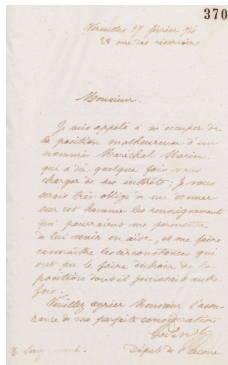 370
Versailles 17 février 74
28 rue des réservoirs
Monsieur.
Je suis appelé à m'occuper de
la position malheureuse d'un
nommé Maréchal Marin
qui a dû quelque fois vous
charger de ses intérêts; Je vous
serais très obligé de me donner
sur cet homme les renseignements
qui pourraient me permettre
à lui venir en aide, et me faire
connaître les circonstances qui
ont pu le faire déchoir de la
position dont il jouissait autre
fois.
Veuillez agréer Monsieur l'assu
rance de ma parfaite considération
Député de l'